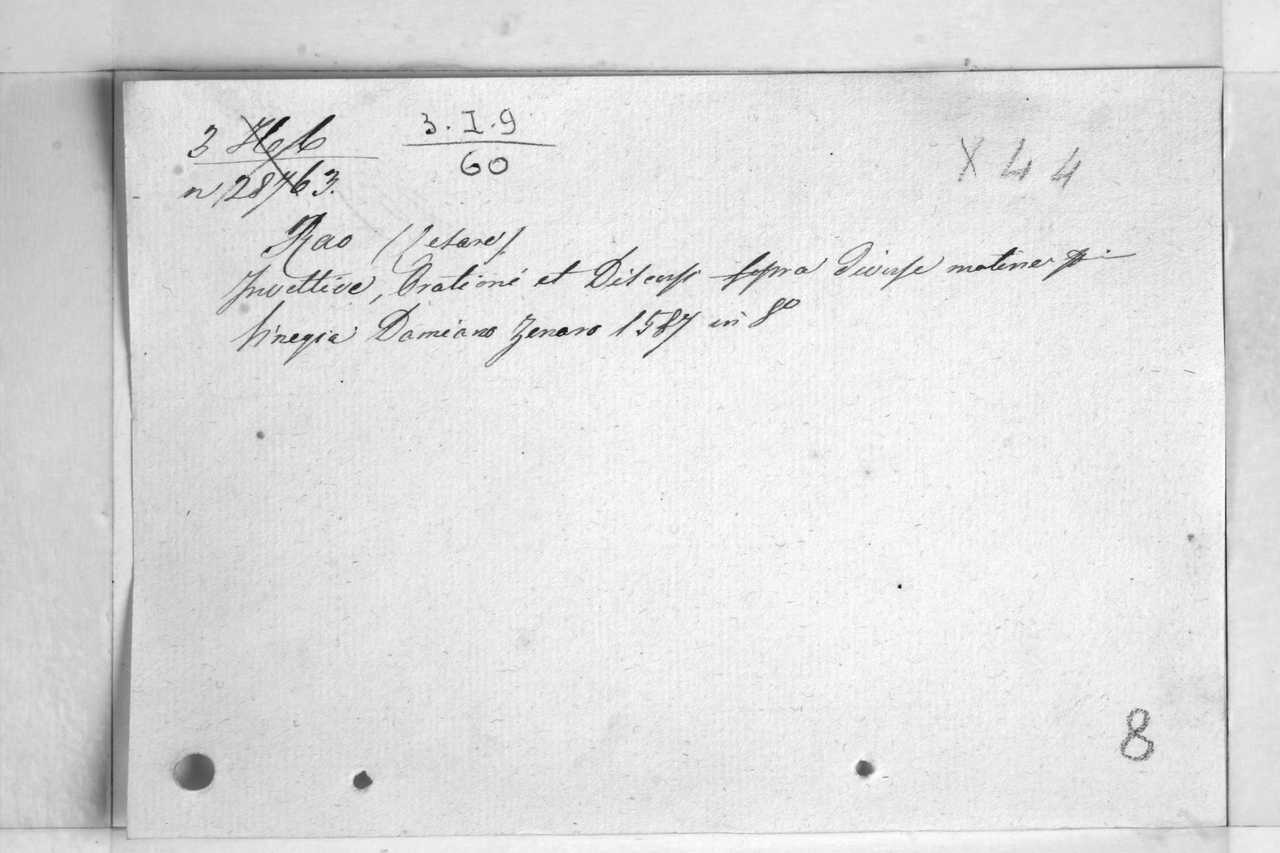 3 H b
n 28763.
3. I. 9
60
X 44
Rao (Cesare)
Invettive, Orationi et Discorsi sopra diverse materie
Vinegia Damiano Zenaro 1587 in 8º
8